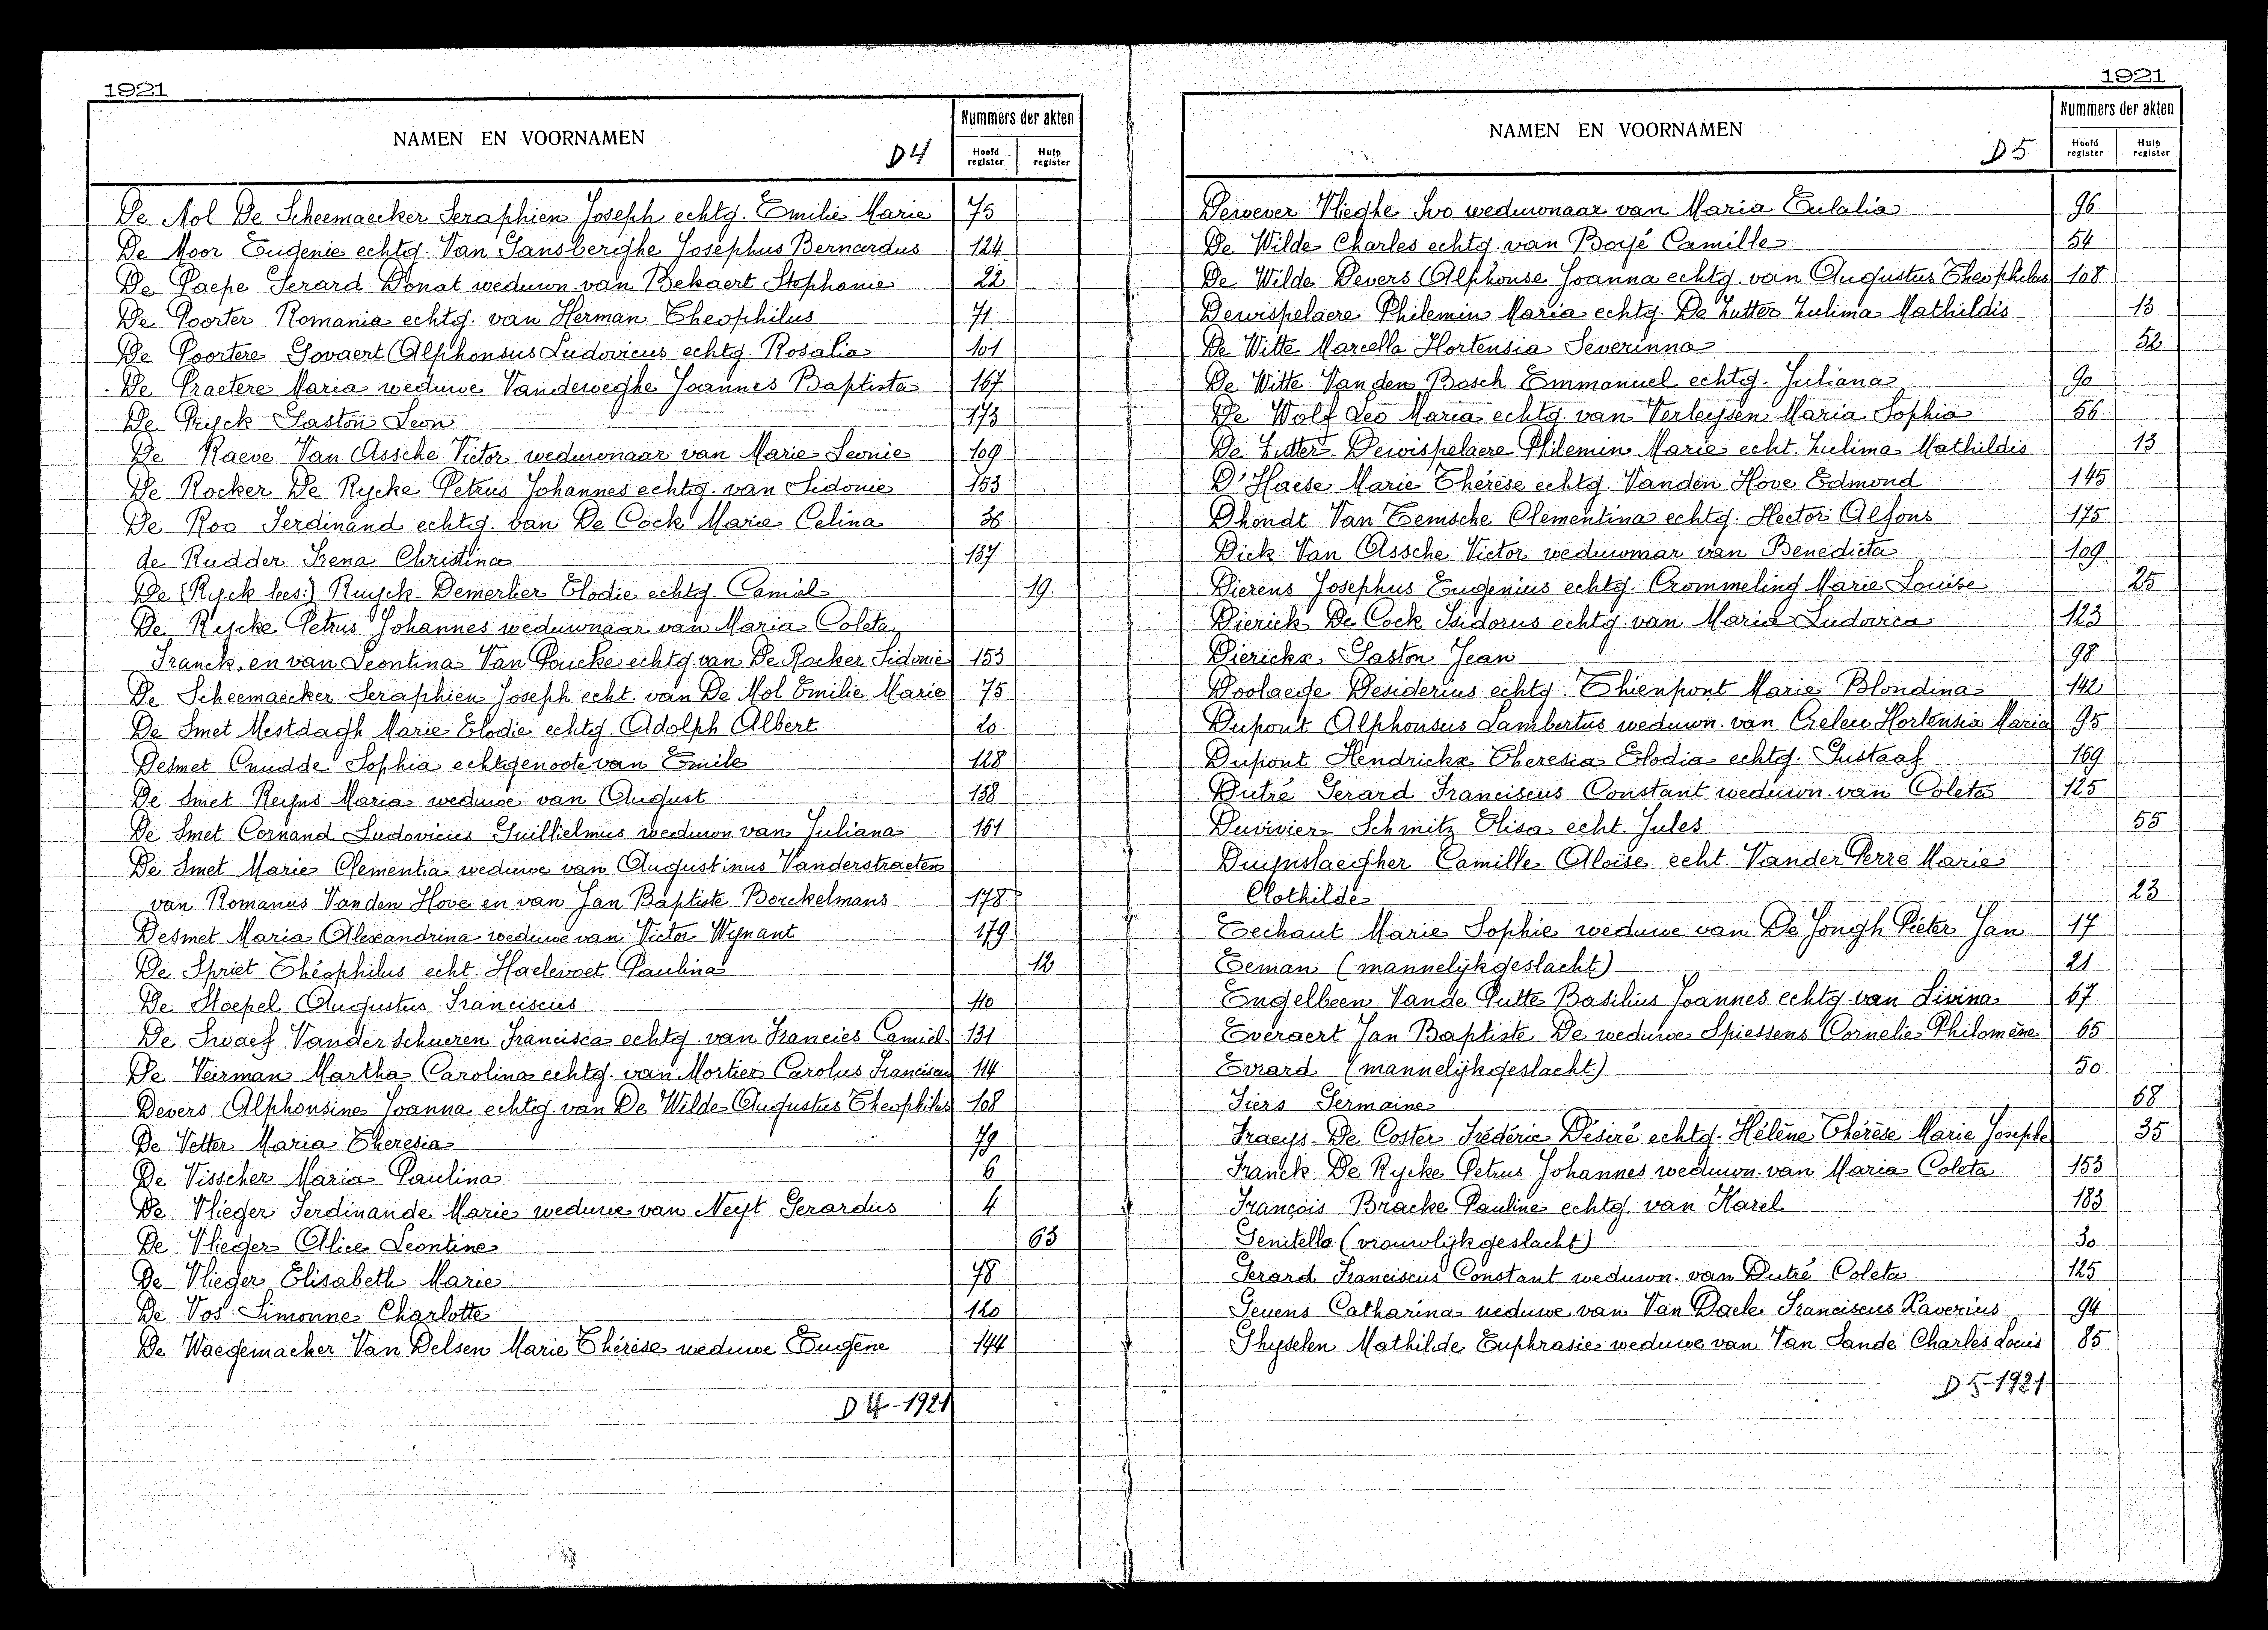 1921
NAMEN EN VOORNAMEN D4 Nummers der akten
Hoofd register Hulp register
De Mol De Scheemaecker Seraphien Joseph echtg. Emilie Marie 75
De Moor Eugenie echtg. Van Gansberghe Josephus Bernardus 124
De Paepe Gerard Donat weduwn. van Bekaert Stephanie 22
De Poorter Romania echtg. van Herman Theophilus 71
De Poortere Govaert Alphonsus Ludovicus echtg. Rosalia 101
De Praetere Maria weduwe Vandeweghe Joannes Baptista 167
De Pryck Gaston Leon 173
De Raeve Van Assche Victor weduwnaar van Marie Leonie 109
De Rocker De Rycke Petrus Johannes echtg. van Sidonie 153
De Roo Ferdinand echtg. van De Cock Marie Celina 36
de Rudder Irena Christina 137
De (Ryck lees:) Ruyck - Demerlier Elodie echtg. Camiel 19.
De Rycke Petrus Johannes weduwnaar van Maria Coleta
Franck, en van Leontina Van Poucke echtg. van De Rocker Sidonie 153
De Scheemaecker Seraphien Joseph echt. van De Mol Emilie Marie 75
De Smet Mestdagh Marie Elodie echtg. Adolph Albert 20.
Desmet Cnudde Sophia echtgenoote van Emile 128
De Smet Reyns Maria weduwe van August 138
De Smet Cornand Ludovicus Guillielmus weduwn. van Juliana 161
De Smet Marie Clementia weduwe van Augustinus Vanderstraeten
van Romanus Vanden Hove en van Jan Baptiste Borckelmans 178
Desmet Maria Alexandrina weduwe van Victor Wynant 179
De Spriet Théophilus echt. Haelevoet Paulina 12
De Stoepel Augustus Franciscus 110
De Swaef Vanderschueren Francisca echtg. van Francies Camiel 131
De Veirman Martha Carolina echtg. van Mortier Carolus Franciscus 114
Devers Alphonsine Joanna echtg. van De Wilde Augustus Theophilus 108
De Vetter Maria Theresia 79
De Visscher Maria Paulina 6
De Vlieger Ferdinande Marie weduwe van Neyt Gerardus 4
De Vlieger Alice Leontine 63
De Vlieger Elisabeth Marie 78
De Vos Simonne Charlotte 120
De Waegemaeker Van Delsen Marie Thérèse weduwe Eugène 144
D4-1921
1921
NAMEN EN VOORNAMEN D5 Nummers der akten
Hoofd register Hulp register
Dewever Vlieghe Ivo weduwnaar van Maria Eulalia 96
De Wilde Charles echtg. van Boyé Camille 54
De Wilde Devers Alphonse Joanna echtg. van Augustus Theophilus 108
Dewispelaere Philemin Maria echtg. De Zutter Zulima Mathildis 13
De Witte Marcella Hortensia Severinna 52
De Witte Van den Bosch Emmanuel echtg. Juliana 90
De Wolf Leo Maria echtg. van Verleysen Maria Sophia 56
De Zutter Dewispelaere Philemin Marie echt. Zulima Mathildis 13
D'Haese Marie Thérèse echtg. Vanden Hove Edmond 145
Dhondt Van Temsche Clementina echtg. Hector Alfons 175
Dick Van Assche Victor weduwnaar van Benedicta 109
Dierens Josephus Eugenius echtg. Crommeling Marie Louise 25
Dierick De Cock Isidorus echtg. van Maria Ludovica 123
Dierickx Gaston Jean 98
Doolaege Desiderius echtg. Thienpont Marie Blondina 142
Dupont Alphonsus Lambertus weduwn. van Creleu Hortensia Maria 95
Dupont Hendrickx Theresia Elodia echtg. Gustaaf 169
Dutré Gerard Franciscus Constant weduwn. van Coleta 125
Duvivier Schmitz Elisa echt. Jules 55
Duynslaegher Camille Aloïse echt. Vander Perre Marie
Clothilde 23
Eechaut Marie Sophie weduwe van De Jongh Pieter Jan 17
Eeman (mannelijk geslacht) 21
Engelbeen Vande Putte Basilius Joannes echtg. van Livina 67
Everaert Jan Baptiste De weduwe Spiessens Cornelie Philomène 65
Evrard (mannelijk geslacht) 50
Fiers Germaine 68
Fraeys - De Coster Frédéric Désiré echtg. Hélène Thérèse Marie Josephe 35
Franck De Rycke Petrus Johannes weduwn. van Maria Coleta 153
François Bracke Pauline echtg. van Karel 183
Genitello (vrouwlijk geslacht) 30
Gerard Franciscus Constant weduwn. van Dutré Coleta 125
Geuens Catharina weduwe van Van Daele Franciscus Xaverius 94
Ghyselen Mathilde Euphrasie weduwe van Van Sande Charles Louis 85
D5-1921